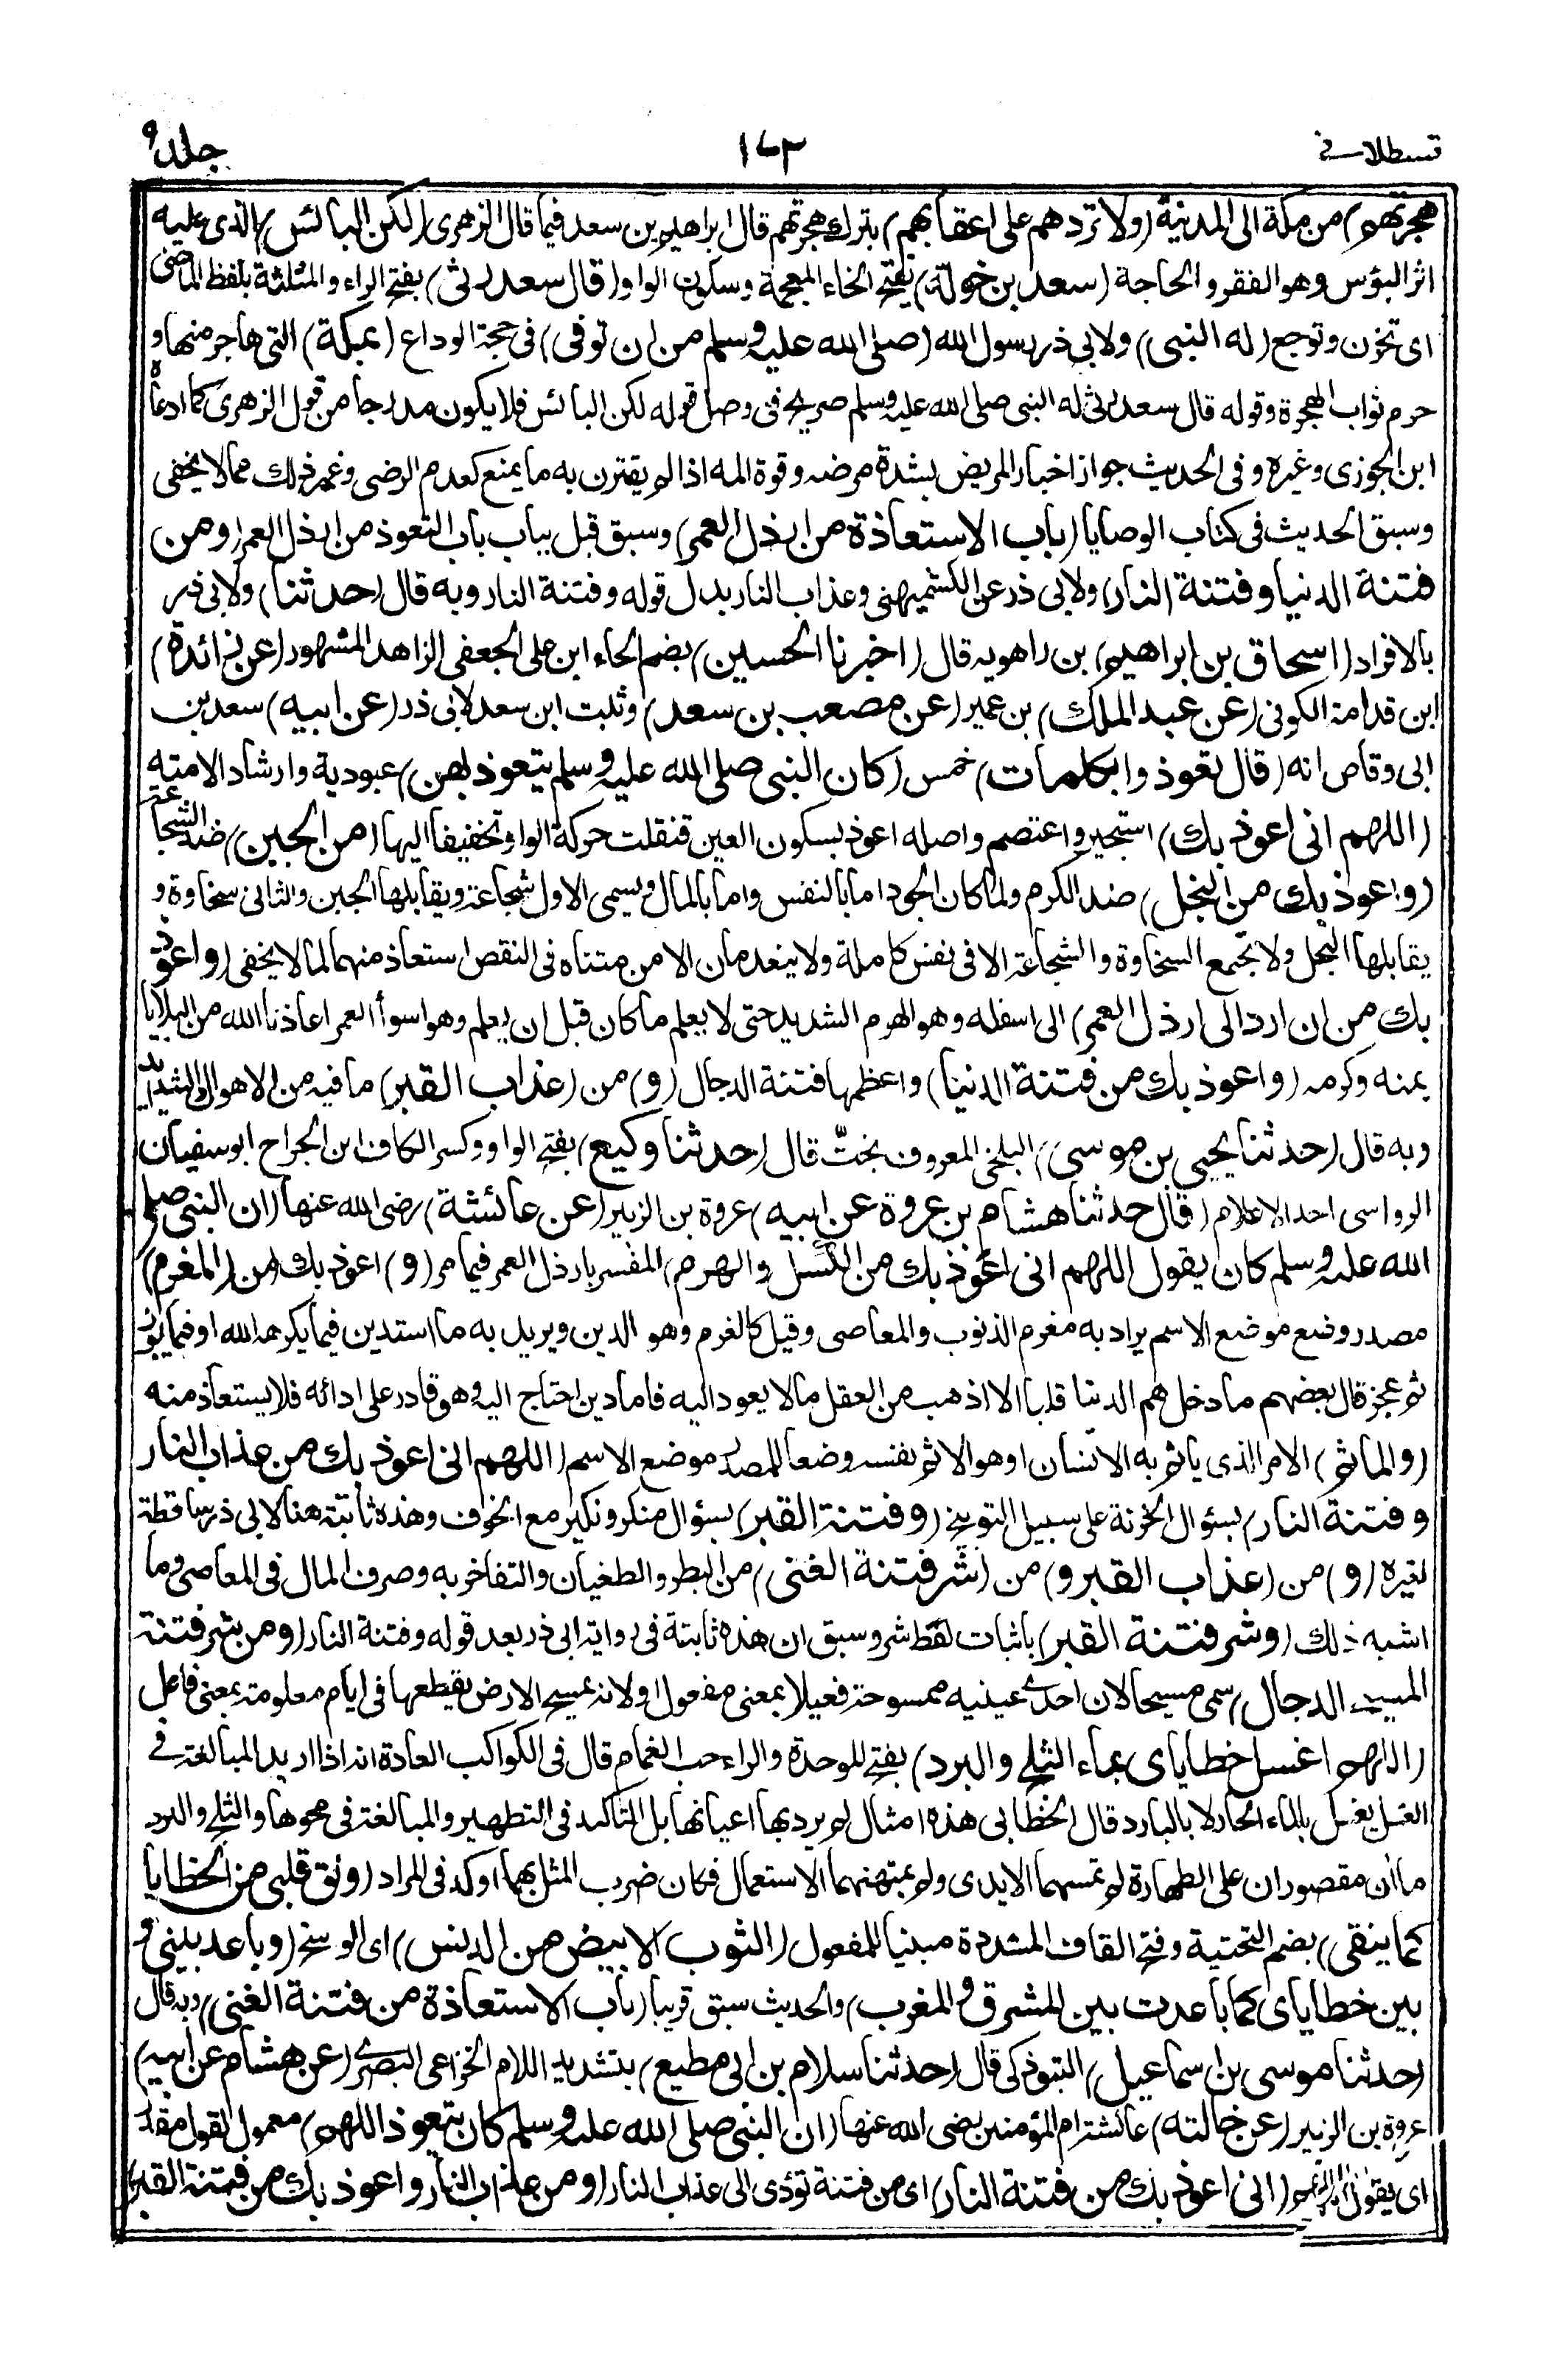 قسطلانی
١٧٣
جلد ٩
هجرتهم) من مكة الى المدنية (ولا تردهم على اعقابهم) بترك هجرتهم قال ابراهيم بن سعد فيما قال الزهرى (لكن البائس) الذى عليه
اثر البؤس وهو الفقر والحاجة (سعد بن خولة) بفتح الخاء المعجمة وسكون الواو (قال سعد رثى) بفتح الراء والمثلثة بلفظ الماضى
اى تحزن وتوجع (له النبى) ولابى ذر رسول الله (صلى الله عليه وسلم من ان توفى) فى حجة الوداع (بمكة) التى هاجر منها و
حرم ثواب الهجرة وقوله قال سعد رثى له النبى صلى الله عليه وسلم صريح فى وصل قوله لكن البائس فلا يكون مدرجا من قول الزهرى كما ادعاه
ابن الجوزى وغيره وفى الحديث جواز اخبار المريض بشدة مرضه وقوة المه اذا لم يقترن به ما يمنع كعدم الرضى وغير ذلك مما لا يخفى
وسبق الحديث فى كتاب الوصايا (باب الاستعاذة من ارذل العمر) وسبق قبل بباب باب التعوذ من ارذل العمر (ومن
فتنة الدنيا وفتنة النار) ولابى ذر عن الكشميهنى وعذاب النار بدل قوله وفتنة النار وبه قال (حدثنا) ولابى ذر
بالافراد (اسحاق بن ابراهيم) بن راهويه قال (اخبرنا الحسين) بضم الحاء ابن على الجعفى الزاهد المشهور (عن زائدة)
ابن قدامة الكوفى (عن عبد الملك) بن عمير (عن مصعب بن سعد) وثبت ابن سعد لابى ذر (عن ابيه) سعد بن
ابى وقاص انه (قال تعوذوا بكلمات) خمس (كان النبى صلى الله عليه وسلم يتعوذ بهن) عبودية وارشادا لامته
(اللهم انى اعوذ بك) استجير واعتصم واصله اعوذ بسكون العين فنقلت حركة الواو تخفيفا اليها (من الجبن) ضد الشجاعة
(واعوذ بك من البخل) ضد الكرم ولما كان الجود اما بالنفس واما بالمال ويسمى الاول شجاعة ويقابلها الجبن والثانى سخاوة و
يقابلها البخل ولا تجتمع السخاوة والشجاعة الا فى نفس كاملة ولا ينعدمان الا من متناه فى النقص استعاذ منهما لما لا يخفى (واعوذ
بك من ان ارد الى ارذل العمر) الى اسفله وهو الهرم الشديد حتى لا يعلم ما كان قبل ان يعلم وهو اسوأ العمر اعاذنا الله من البلايا
بمنه وكرمه (واعوذ بك من فتنة الدنيا) واعظمها فتنة الدجال (و) من (عذاب القبر) ما فيه من الاهوال والشدائد
وبه قال (حدثنا يحيى بن موسى) البلخى المعروف بختّ قال (حدثنا وكيع) بفتح الواو وكسر الكاف ابن الجراح ابو سفيان
الرواسى احد الاعلام (قال حدثنا هشام بن عروة عن ابيه) عروة بن الزبير (عن عائشة) رضى الله عنها (ان النبى صلى
الله عليه وسلم كان يقول اللهم انى اعوذ بك من الكسل والهرم) المفسر بارذل العمر فيما مر (و) اعوذ بك (من المغرم)
مصدر وضع موضع الاسم يراد به مغرم الذنوب والمعاصى وقيل كالغرم وهو الدين ويريد به ما استدين فيما يكرهه الله او فيما يجوز
ثم عجز قال بعضهم ما دخل هم الدين قلبا الا اذهب من العقل ما لا يعود اليه فاما دين احتاج اليه وهو قادر على ادائه فلا يستعاذ منه
(والماثم) الامر الذى ياثم به الانسان او هو الاثم نفسه وضعا للمصدر موضع الاسم (اللهم انى اعوذ بك من عذاب النار
وفتنة النار) بسؤال الخزنة على سبيل التوبيخ (وفتنة القبر) بسؤال منكر ونكير مع الخوف وهذه ثابتة هنا لابى ذر ساقطة
لغيره (و) من (عذاب القبر و) من (شر فتنة الغنى) من البطر والطغيان والتفاخر به وصرف المال فى المعاصى وما
اشبه ذلك (وشر فتنة القبر) باثبات لفظ شر وسبق ان هذه ثابتة فى رواية ابى ذر بعد قوله وفتنة النار (ومن شر فتنة
المسيح الدجال) سمى مسيحا لان احدى عينيه ممسوحة فعيلا بمعنى مفعول او لانه يمسح الارض يقطعها فى ايام معلومة بمعنى فاعل
(اللهم اغسل خطاياى بماء الثلج والبرد) بفتح الموحدة والراء حب الغمام قال فى الكواكب العادة انه اذا اريد المبالغة فى
الغسل يغسل بالماء الحار لا بالبارد قال الخطابى هذه امثال لم يرد بها اعيانها بل التاكيد فى التطهير والمبالغة فى محوها والثلج والبرد
ماآن مقصوران على الطهارة لم تمسهما الايدى ولم يمتهنهما الاستعمال فكان ضرب المثل بهما اوكد فى المراد (ونق قلبى من الخطايا
كما ينقى) بضم التحتية وفتح القاف المشددة مبنيا للمفعول (الثوب الابيض من الدنس) اى الوسخ (وباعد بينى و
بين خطاياى كما باعدت بين المشرق والمغرب) والحديث سبق قريبا (باب الاستعاذة من فتنة الغنى) وبه قال
(حدثنا موسى بن اسماعيل) التبوذكى قال (حدثنا سلام بن ابى مطيع) بتشديد اللام الخزاعى البصرى (عن هشام عن ابيه)
عروة بن الزبير (عن خالته) عائشة ام المؤمنين رضى الله عنها (ان النبى صلى الله عليه وسلم كان يتعوذ اللهم) معمول لقول مقدر
اى يقول اللهم (انى اعوذ بك من فتنة النار) اى من فتنة تؤدى الى عذاب النار (ومن عذاب النار واعوذ بك من فتنة القبر)